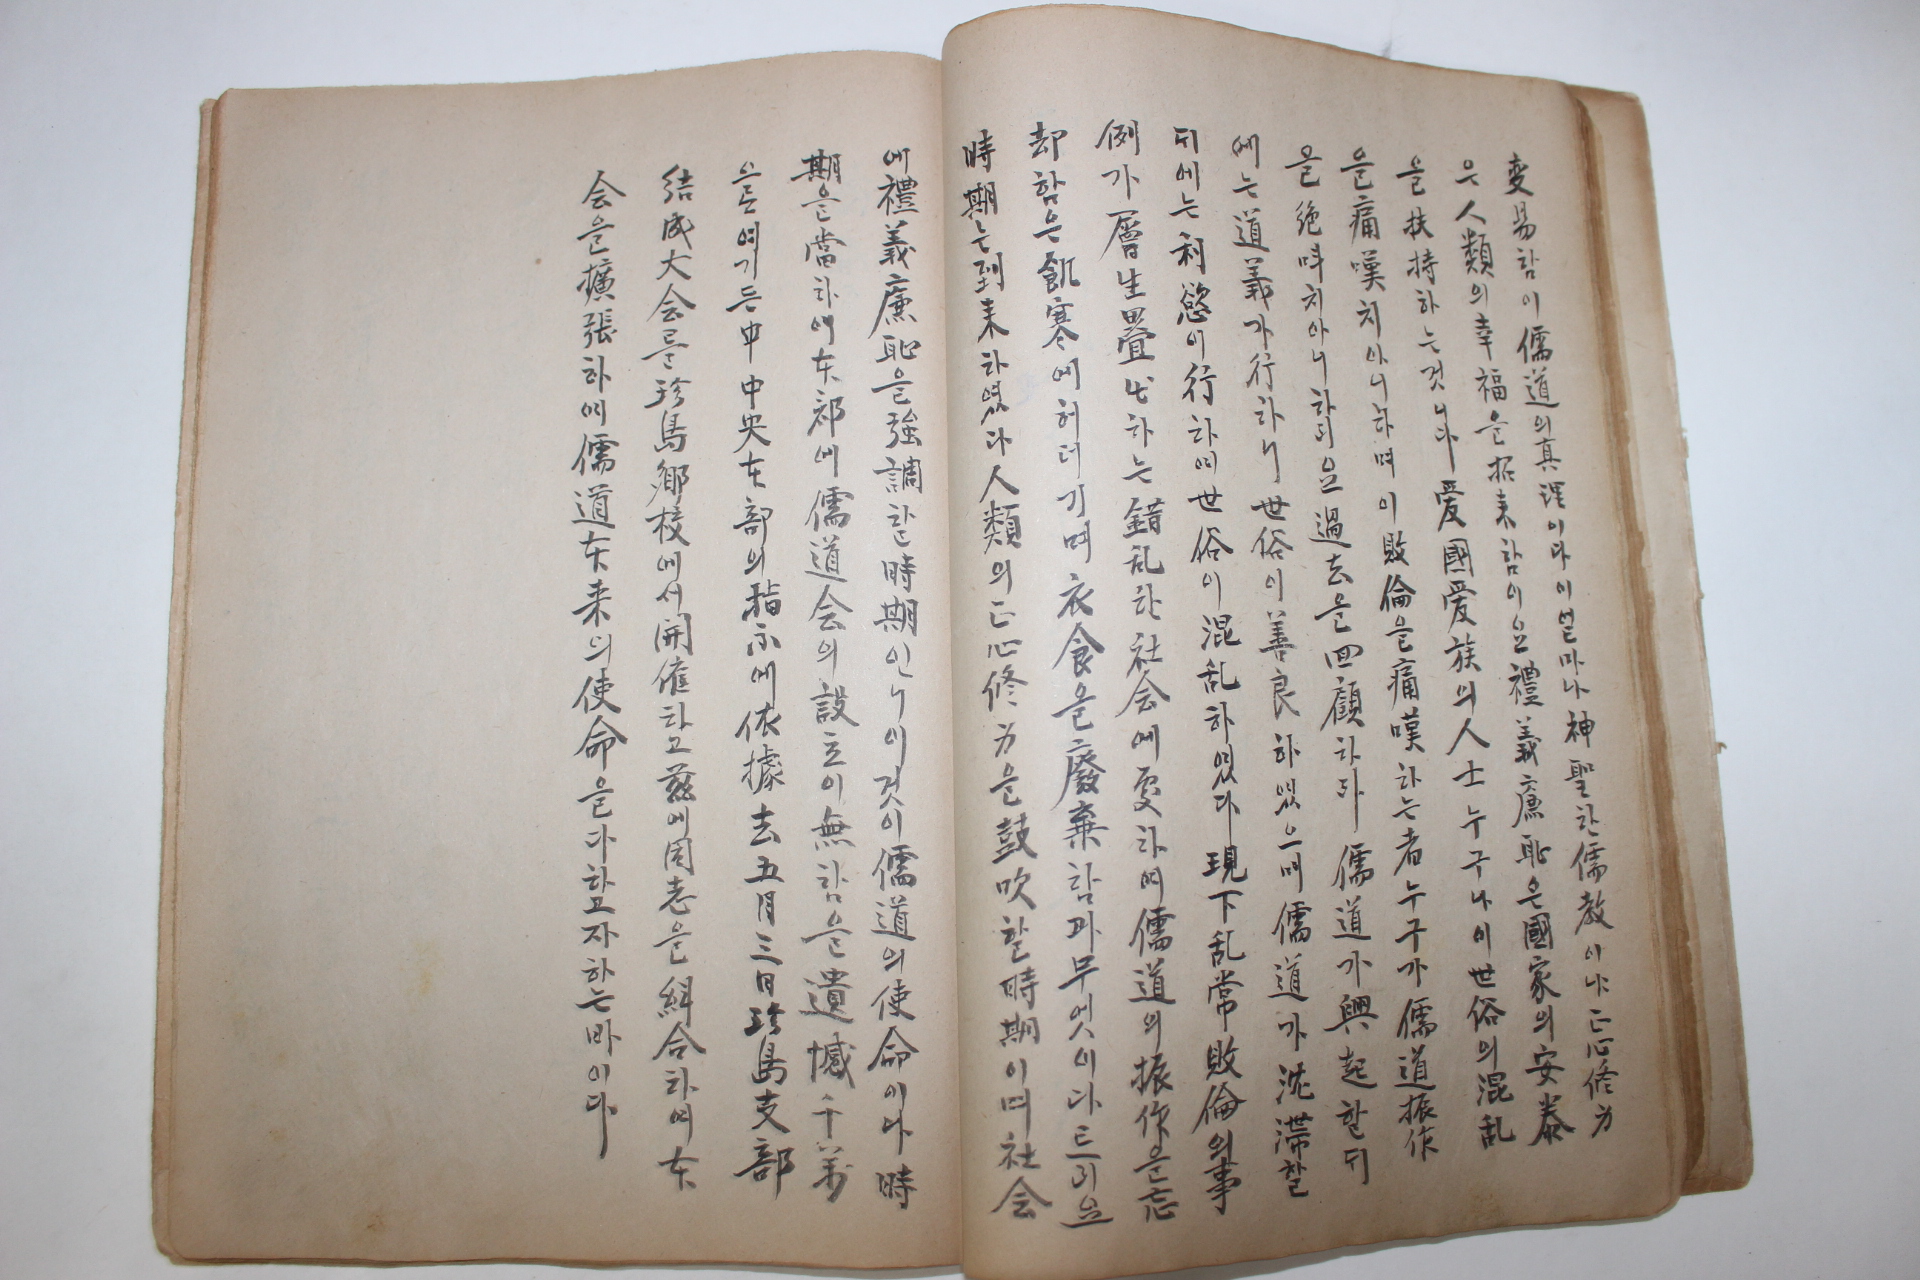 変易함이儒道의真理이다이얼마나神聖한儒教이냐正心修身
은人類의幸福을招来함이요禮義廉恥은國家의安泰
을扶持하는것니다愛國愛族의人士누구나이世俗의混乱
을痛嘆치아니하며이敗倫을痛嘆하는者누구가儒道振作
을絶叫치아니하리요過去을回顧하라儒道가興起할디
에는道義가行하니世俗이善良하였으며儒道가沈滞할
디에는利慾이行하여世俗이混乱하였다現下乱常敗倫의事
例가層生疊出하는錯乱한社会에處하여儒道의振作을忘
却함은飢寒에허더기며衣食을廢棄함과무엇이다르리요
時期는到来하였다人類의正心修身을鼓吹할時期이며社会
에禮義廉恥을強調한時期인니이것이儒道의使命이라時
期을當하여本郡에儒道会의設立이無함을遺憾千萬
으로여기든中中央本部의指示에依據去五月三日珍島支部
結成大会를珍島鄕校에서開催하고玆에同志을糾合하여本
会을擴張하여儒道本来의使命을다하고자하는바이다